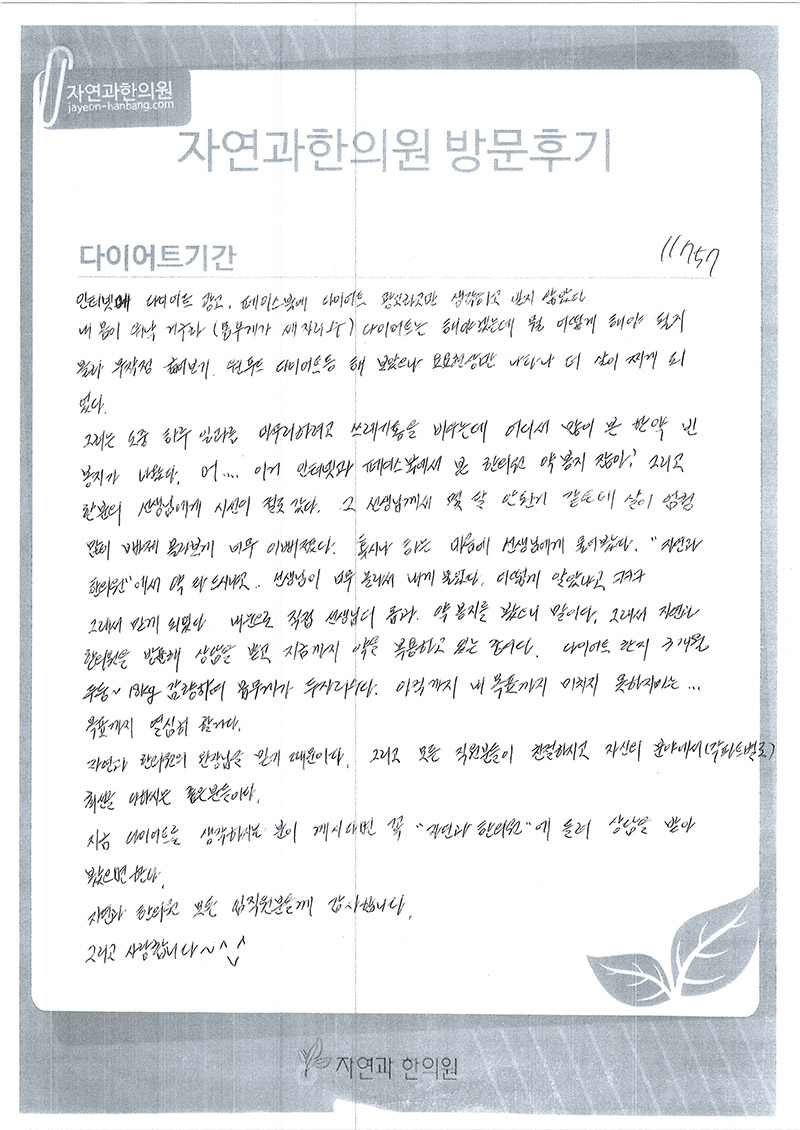 자연과한의원
jayeon-hanbang.com
자연과한의원 방문후기
다이어트기간
11757
인터넷에 다이어트 광고, 페이스북에 다이어트 광고라고만 생각하고 믿지 않았다
내 몸이 워낙 거구라 (몸무게가 세자리수) 다이어트는 해야겠는데 뭘 어떻게 해야 될지
몰라 무작정 굶어보기, 원푸드 다이어트등 해 보았으나 요요현상만 나타나 더 살이 찌게 되
었다.
그러는 도중 하루 일과를 마무리하려고 쓰레기통을 비우는데 어디서 많이 본 한약 빈
봉지가 나왔다. 어.... 이거 인터넷과 페이스북에서 본 한의원 약봉지 잖아? 그리고
한분의 선생님에게 시선이 절로 갔다. 그 선생님께서 몇 달 안된거 같은데 살이 엄청
많이 빠져 몰라보게 너무 이뻐졌다. 혹시나 하는 마음에 선생님에게 물어봤다. "자연과
한의원"에서 약 드시냐고.. 선생님이 너무 놀라서 내게 물었다. 어떻게 알았냐고 ㅋㅋㅋ
그래서 믿게 되었다 내눈으로 직접 선생님의 몸과 약 봉지를 봤으니 말이다. 그래서 자연과
한의원을 방문해 상담을 받고 지금까지 약을 복용하고 있는 중이다. 다이어트 한지 3개월
우동~ 18kg 감량하여 몸무게가 두자리다. 아직까지 내 목표까지 미치지 못하지만 ...
목표까지 열심히 할거다.
자연과 한의원의 원장님을 믿기 때문이다. 그리고 모든 직원분들이 친절하시고 자신의 분야에서(각파트별로)
최선을 다하시는 좋은분들이다.
지금 다이어트를 생각하시는 분이 계시다면 꼭 "자연과 한의원"에 들려 상담을 받아
봤으면 한다.
자연과 한의원 모든 임직원분들께 감사합니다.
그리고 사랑합니다~^^
자연과 한의원